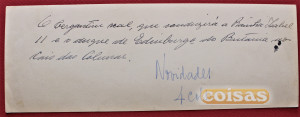 O bergantim real, que conduzirá a Rainha Isabel
II e o duque de Edinburgo do Britania, ao
Cais das Colunas.
Novidades
coisas